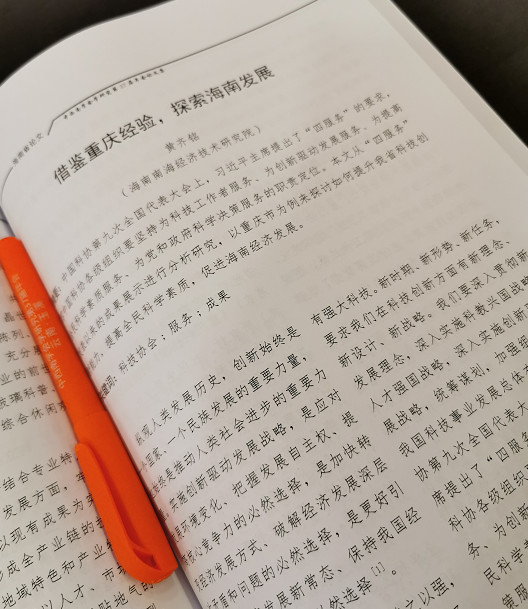 借鉴重庆经验，探索海南发展
黄齐铭
（海南南海经济技术研究院）
中国科协第九次全国代表大会上，习近平主席提出了“四服务”的要求，
科协各级组织要坚持为科技工作者服务、为创新驱动发展服务、为提高
科学素质服务、为党和政府科学决策服务的职责定位。本文从“四服务”
来的成果展示进行分析研究，以重庆市为例来探讨如何提升我省科技创
力，提高全民科学素质，促进海南经济发展。
科技协会；服务；成果
观人类发展历史，创新始终是
国家、一个民族发展的重要力量，
是推动人类社会进步的重要力
实施创新驱动发展战略，是应对
环境变化、把握发展自主权、提
心竞争力的必然选择，是加快转
经济发展方式、破解经济发展深层
矛盾和问题的必然选择，是更好引
发展新常态、保持我国经
然选择[1]。
有强大科技。新时期、新形势、新任务，
要求我们在科技创新方面有新理念、
新设计、新战略。我们要深入贯彻新
发展理念，深入实施科教兴国战
人才强国战略，深入实施创新
展战略，统筹谋划，加强组
我国科技事业发展总体
协第九次全国代表大
席提出了“四服
科协各级组织
务、为创新
民科学
之以强，
陈列、
充分
业的前
玻璃科普
综合休闲
结合专业特
发展方面，
以现有成果为
形成全产业链的
地域特色和产业
以人才、市
贴地气的